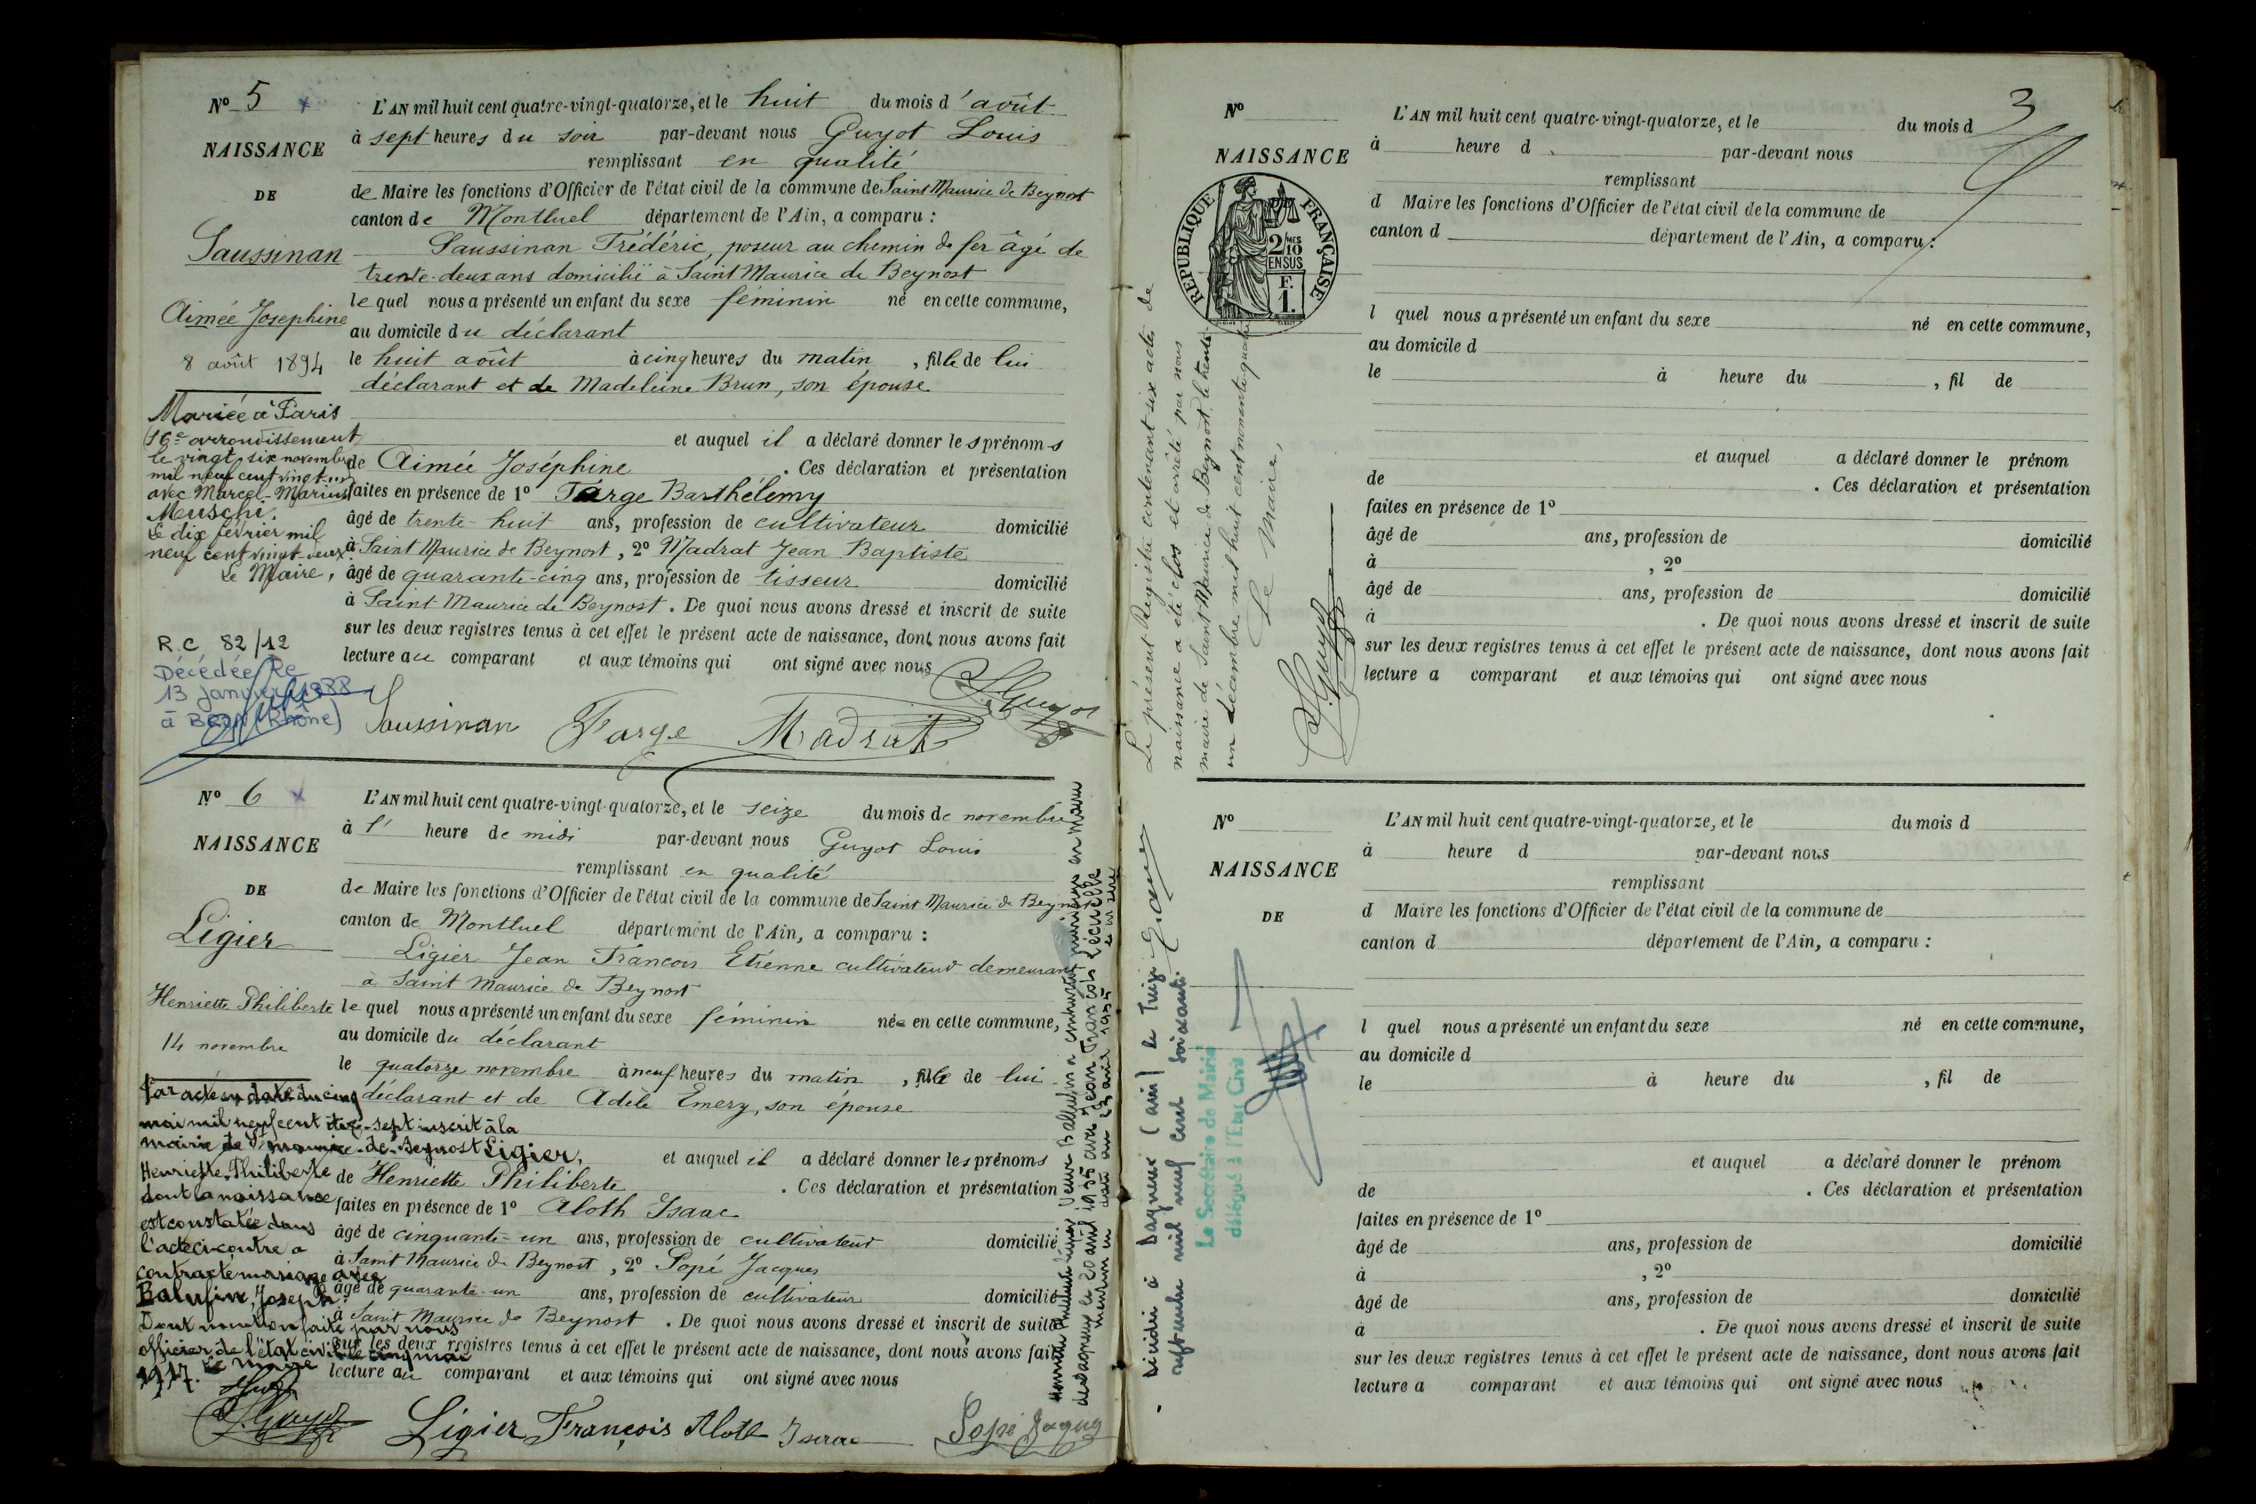 Nº 5
NAISSANCE
DE
Saussinan
Aimée Josephine
8 août 1894
Mariée à Paris
16e arrondissement
le vingt six novembre
mil neuf cent vingt-un
avec Marcel-Marius
Meuschi.
Le dix février mil
neuf cent vingt deux.
Le Maire,
R.C 82/12
Décédée le
13 janvier 1988
à (Rhône)
L'AN mil huit cent quatre-vingt-quatorze, et le huit du mois d'août
à sept heures du soir par-devant nous Guyot Louis
remplissant en qualité
de Maire les fonctions d'Officier de l'état civil de la commune de Saint Maurice de Beynost
canton de Montluel département de l'Ain, a comparu :
Saussinan Frédéric, poseur au chemin de fer âgé de
trente-deux ans domicilié à Saint Maurice de Beynost
le quel nous a présenté un enfant du sexe féminin né en cette commune,
au domicile du déclarant
le huit août à cinq heures du matin, fille de lui
déclarant et de Madeleine Brun, son épouse
et auquel il a déclaré donner les prénoms
de Aimée Joséphine. Ces déclaration et présentation
faites en présence de 1º Farge Barthélemy
âgé de trente-huit ans, profession de cultivateur domicilié
à Saint Maurice de Beynost, 2º Madrat Jean Baptiste
âgé de quarante-cinq ans, profession de tisseur domicilié
à Saint Maurice de Beynost. De quoi nous avons dressé et inscrit de suite
sur les deux registres tenus à cet effet le présent acte de naissance, dont nous avons fait
lecture au comparant et aux témoins qui ont signé avec nous
Saussinan Farge Madrat L Guyot
Nº 6
NAISSANCE
DE
Ligier
Henriette Philiberte
14 novembre
Par acte en date du cinq
mai mil neuf cent dix-sept inscrit à la
mairie de St Maurice-de-Beynost Ligier,
Henriette Philiberte
dont la naissance
est constatée dans
l'acte ci-contre a
contracté mariage avec
Balufin, Joseph.
Dont mention faite par nous
officier de l'état civil le cinq mai
1917. Le maire
L Guyot
L'AN mil huit cent quatre-vingt-quatorze, et le seize du mois de novembre
à l' heure de midi par-devant nous Guyot Louis
remplissant en qualité
de Maire les fonctions d'Officier de l'état civil de la commune de Saint Maurice de Beynost
canton de Montluel département de l'Ain, a comparu :
Ligier Jean Francois Etienne cultivateur demeurant
à Saint Maurice de Beynost
le quel nous a présenté un enfant du sexe féminin née en cette commune,
au domicile du déclarant
le quatorze novembre à neuf heures du matin, fille de lui
déclarant et de Adèle Emery, son épouse
et auquel il a déclaré donner les prénoms
de Henriette Philiberte. Ces déclaration et présentation
faites en présence de 1º Aloth Isaac
âgé de cinquante-un ans, profession de cultivateur domicilié
à Saint Maurice de Beynost, 2º Popé Jacques
âgé de quarante-un ans, profession de cultivateur domicilié
à Saint Maurice de Beynost. De quoi nous avons dressé et inscrit de suite
sur les deux registres tenus à cet effet le présent acte de naissance, dont nous avons fait
lecture au comparant et aux témoins qui ont signé avec nous
Ligier François Aloth Isaac Popé Jaques
Veuve a contracté mariage en mairie
de Dagneux le 20 avril 1935 avec Jean François Lécuelle
mention en date du 23 avril 1935
Le présent Registre contenant six actes de
naissance a été clos et arrêté par nous
maire de Saint Maurice de Beynost, le trente
un décembre mil huit cent nonante quatre
Le Maire,
L Guyot
Décédée à Dagneux (Ain) le treize
septembre mil neuf cent soixante.
Le Secrétaire de Mairie
délégué à l'Etat Civil
3
Nº
NAISSANCE
REPUBLIQUE FRANÇAISE
2/10MES
EN SUS
F.
1.
L'AN mil huit cent quatre-vingt-quatorze, et le du mois d
à heure d par-devant nous
remplissant
d Maire les fonctions d'Officier de l'état civil de la commune de
canton d département de l'Ain, a comparu :
l quel nous a présenté un enfant du sexe né en cette commune,
au domicile d
le à heure du , fil de
et auquel a déclaré donner le prénom
de . Ces déclaration et présentation
faites en présence de 1º
âgé de ans, profession de domicilié
à , 2º
âgé de ans, profession de domicilié
à . De quoi nous avons dressé et inscrit de suite
sur les deux registres tenus à cet effet le présent acte de naissance, dont nous avons fait
lecture a comparant et aux témoins qui ont signé avec nous
Nº
NAISSANCE
DE
L'AN mil huit cent quatre-vingt-quatorze, et le du mois d
à heure d par-devant nous
remplissant
d Maire les fonctions d'Officier de l'état civil de la commune de
canton d département de l'Ain, a comparu :
l quel nous a présenté un enfant du sexe né en cette commune,
au domicile d
le à heure du , fil de
et auquel a déclaré donner le prénom
de . Ces déclaration et présentation
faites en présence de 1º
âgé de ans, profession de domicilié
à , 2º
âgé de ans, profession de domicilié
à . De quoi nous avons dressé et inscrit de suite
sur les deux registres tenus à cet effet le présent acte de naissance, dont nous avons fait
lecture a comparant et aux témoins qui ont signé avec nous